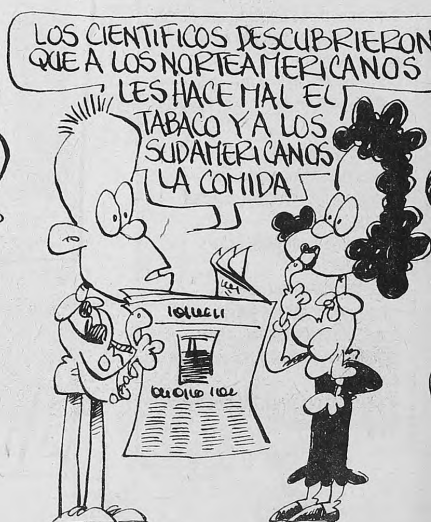 LOS CIENTIFICOS DESCUBRIERON
QUE A LOS NORTEAMERICANOS
LES HACE MAL EL
TABACO Y A LOS
SUDAMERICANOS
LA COMIDA